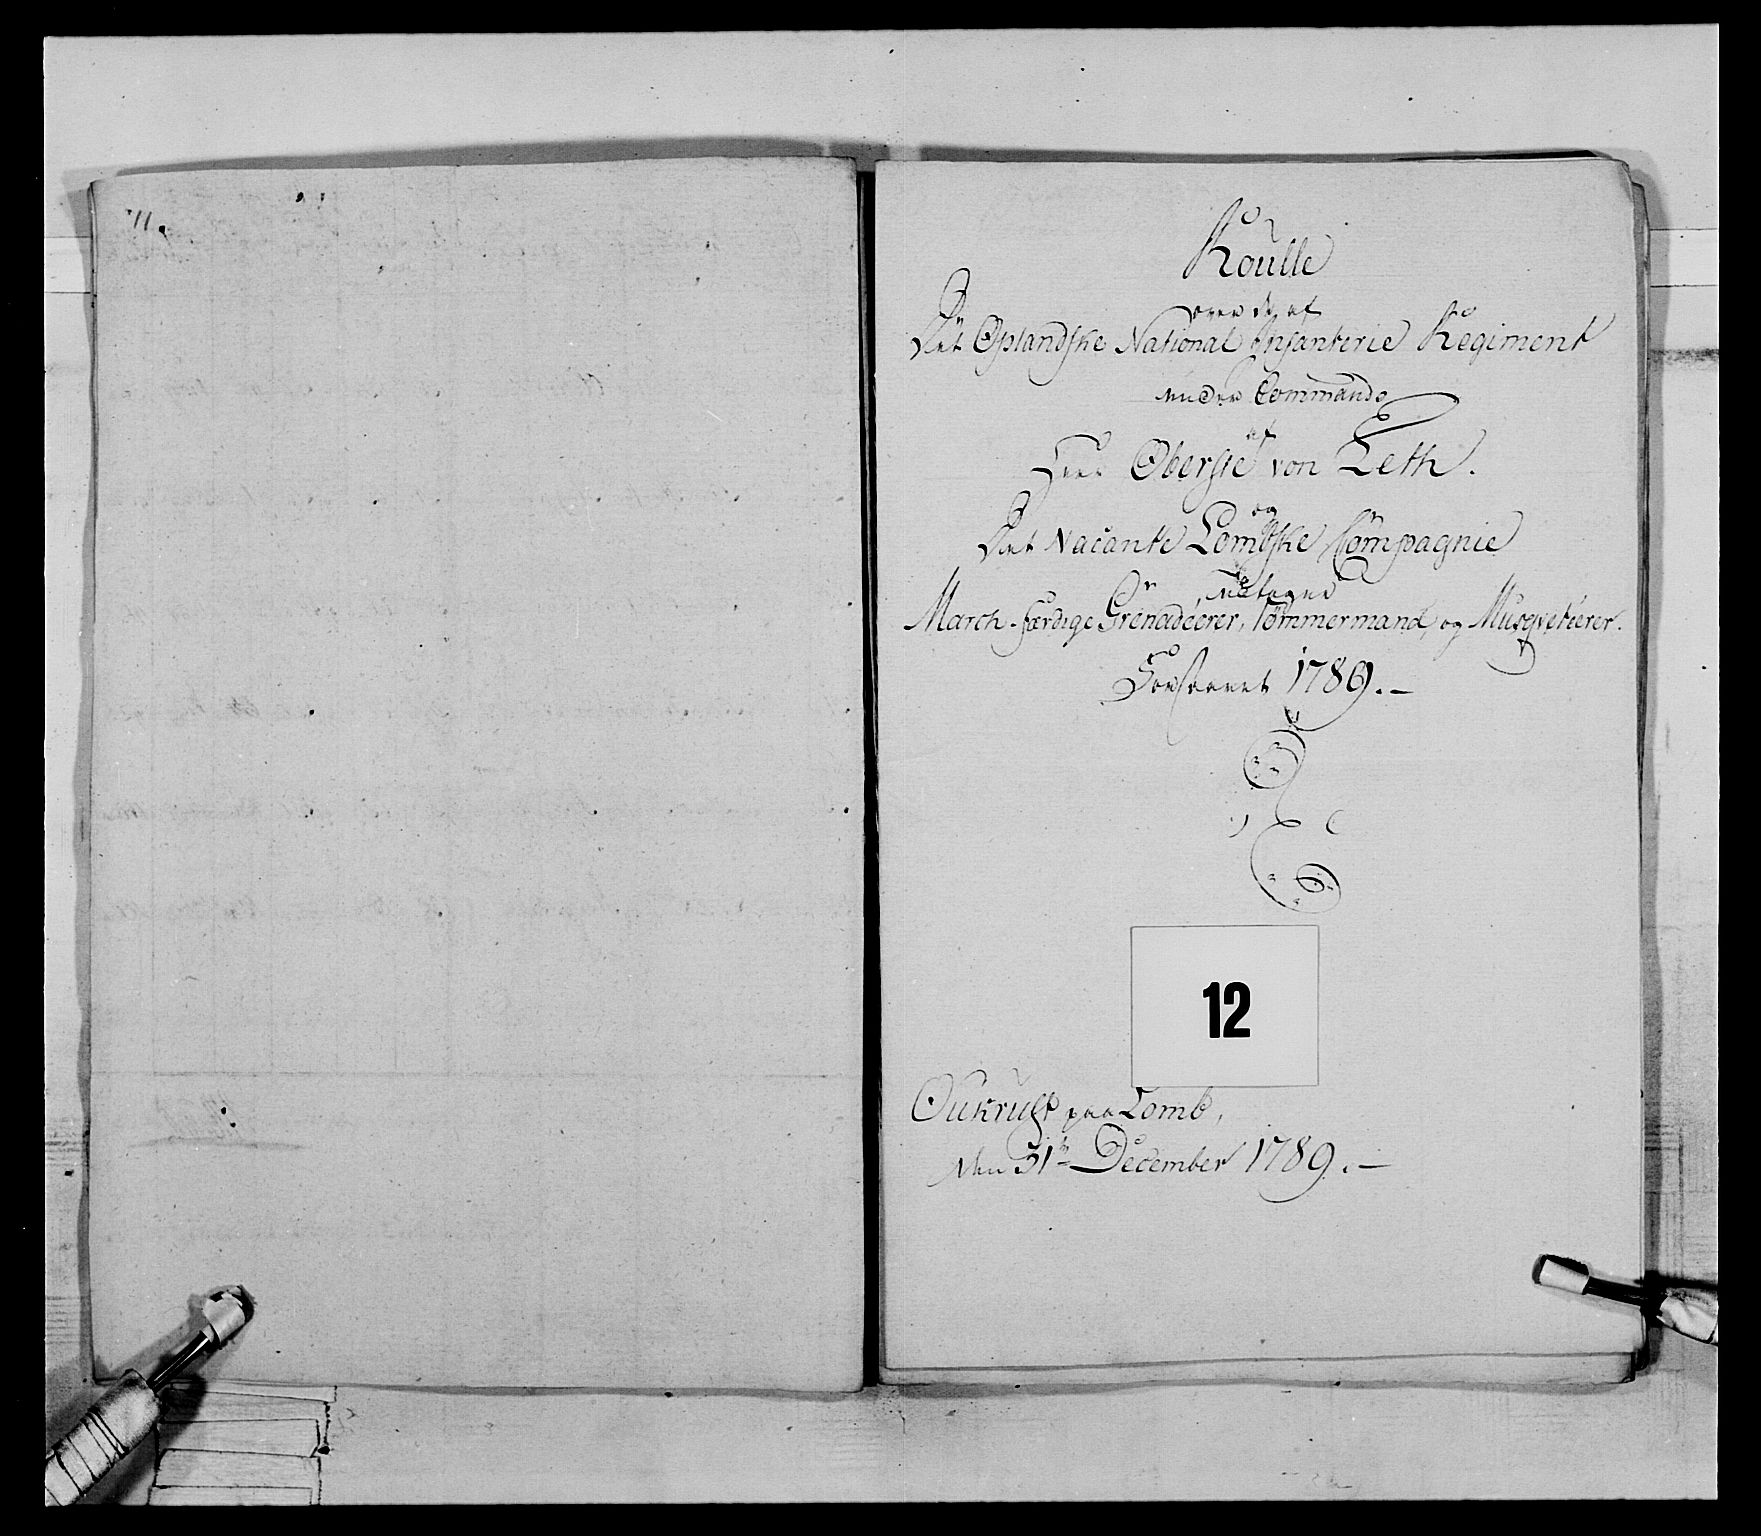 11.
Roulle
over de af
Det Oplandske National Infanterie Regiment
under Commando
af
Herr Oberste von Leth.
og
Det Vacante Lombske Compagnie
March-færdige Grenadéerer, Tømmermænd, og Musqveterer.
Foraaret 1789.—
12
Qukrust paa Lomb,
den 31te December 1789.—